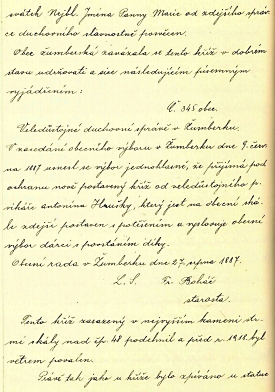 svátek Nejbl. Jména Panny Marie od zdejšího správ-
ce duchovního slavnostně posvěcen.
Obec Žumberská zavázala se tento kříž v dobrém
stavu udržovati a sice následujícím písemným
vyjádřením:
Č. 345 obec.
Veledůstojné duchovní správě v Žumberku.
V zasedání obecního výboru v Žumberku dne 9. červ-
na 1887 usnesl se výbor jednohlasně, že přijímá pod
ochranu nově postavený kříž od veledůstojného p.
vikáře Antonína Hrušky, který jest na obecní ská-
le zdejší postaven s potěšením a vyslovuje obecní
výbor dárci s povstáním díky.
Obecní rada v Žumberku dne 27. srpna 1887.
L. S. Fr. Boháč
starosta.
Tento kříž zasazený v nejvyšším kameni str-
mé skály nad čp. 48 podehnil a před r. 1918 byl
větrem povalen.
Právě tak jako u kříže bylo zpíváno u statue